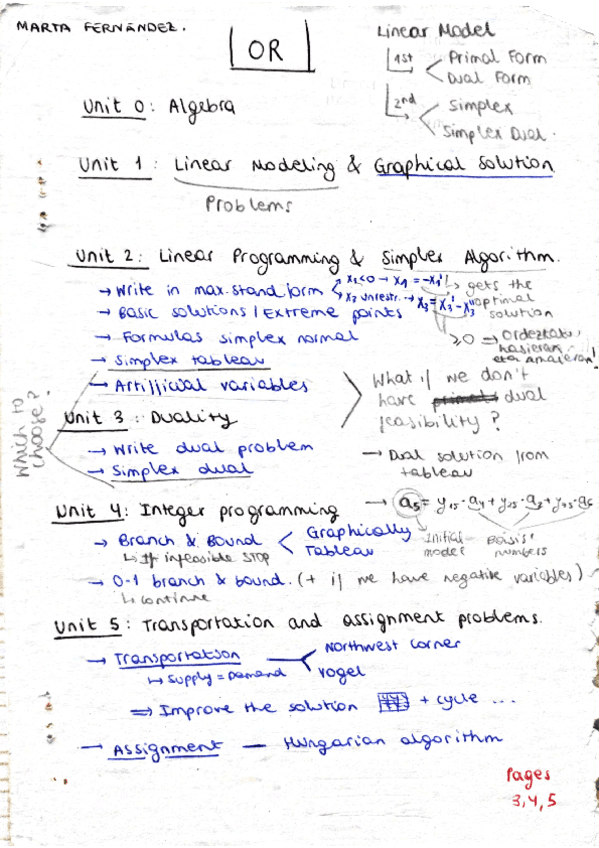 MARTA FERNÁNDEZ.
OR
Linear Model
1st
Primal Form
Dual Form
2nd
Simplex
Simplex Dual.
Unit 0: Algebra
Unit 1: Linear Modeling & Graphical Solution
Problems
Unit 2: Linear Programming & Simplex Algorithm.
→ Write in max. stand form
x1<0 → x1 = -x1'
x3 unrestr. → x3 = x3' - x3''
→ gets the optimal solution
≥0 ⇒ Ordeztatu hasieran eta amaieran!
→ Basic solutions / Extreme points
→ Formulas simplex normal
→ Simplex tableau
→ Artifficial variables
What if we don't
have primal dual
feasibility?
Which to choose?
Unit 3: Duality
→ Write dual problem
→ Simplex dual
→ Dual solution from
tableau
Unit 4: Integer programming
→ a5 = y15·a4 + y25·a2 + y45·a6
Initial model
Basis' numbers
→ Branch & Bound
Graphically
Tableau
↳ If infeasible STOP
→ 0-1 branch & bound. (+ if we have negative variables)
↳ continue
Unit 5: Transportation and assignment problems.
→ Transportation
Northwest corner
Vogel
↳ Supply = Demand
⇒ Improve the solution + cycle ...
→ Assignment — Hungarian algorithm
Pages
3,4,5